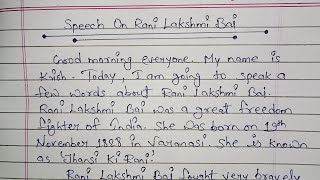 Speech On Rani Lakshmi Bai
Good morning everyone. My name is
Krish. Today, I am going to speak a
few words about Rani Lakshmi Bai.
Rani Lakshmi Bai was a great freedom
fighter of India. She was born on 19th
November 1828 in Varanasi. She is known
as 'Jhansi Ki Rani'.
Rani Lakshmi Bai fought very bravely